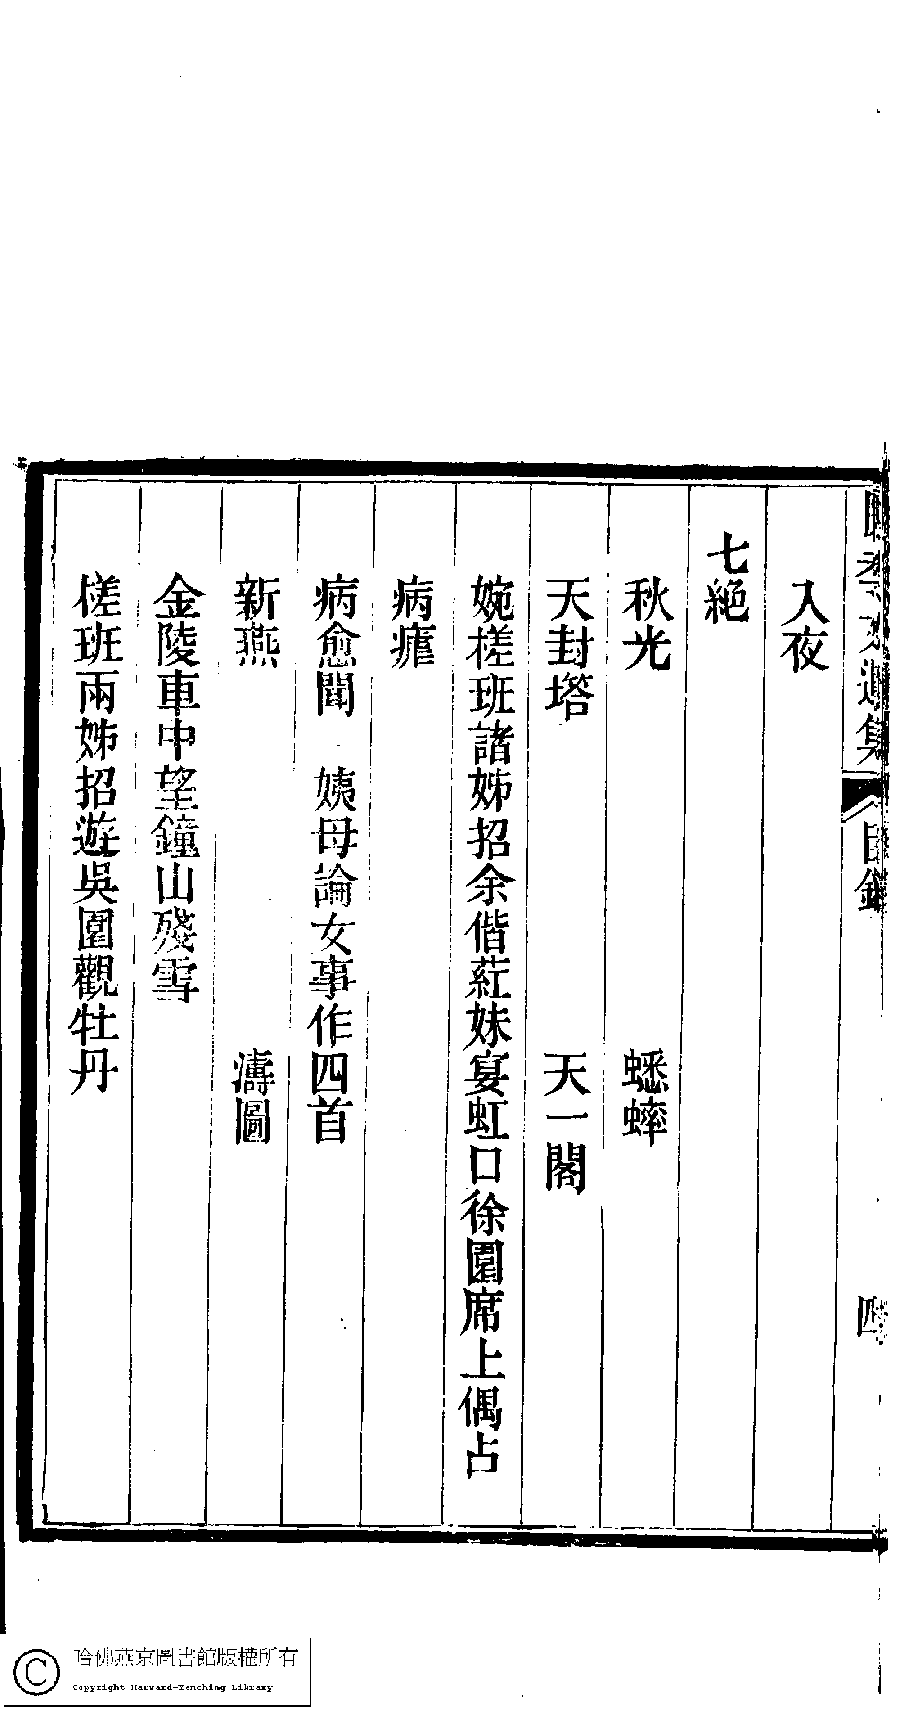 入夜
七絕
秋光　蟋蟀
天封塔　天一閣
婉槎班諸姊招余偕葒妹宴虹口徐園席上偶占
病瘧
病愈聞　姨母論女事作四首
新燕　濤圖
金陵車中望鐘山殘雪
槎班兩姊招遊吳園觀牡丹
遺集
目錄
四
哈佛燕京圖書館版權所有
Copyright Harvard-Yenching Library